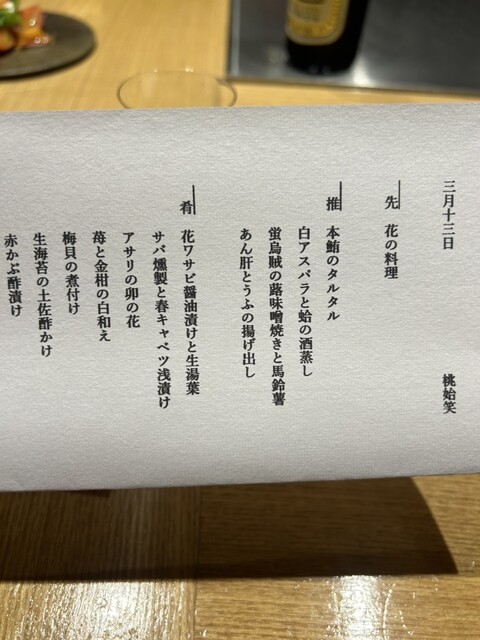 三月十三日 桃始笑
先 花の料理
推 本鮪のタルタル
白アスパラと蛤の酒蒸し
蛍烏賊の蕗味噌焼きと馬鈴薯
あん肝とうふの揚げ出し
肴 花ワサビ醤油漬けと生湯葉
サバ燻製と春キャベツ浅漬け
アサリの卯の花
苺と金柑の白和え
梅貝の煮付け
生海苔の土佐酢かけ
赤かぶ酢漬け